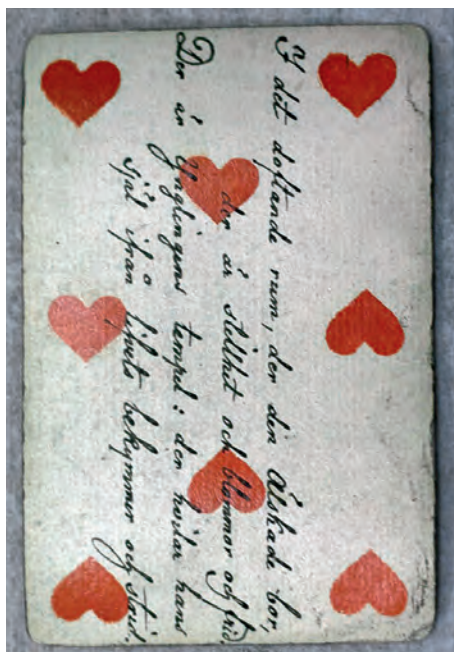 I det doftande rum, der den Älskade bor,
der är stillhet och blommor och frid.
Der är Ynglingens tempel: der hvilar hans
själ ifrån lifvets bekymmer och strid.